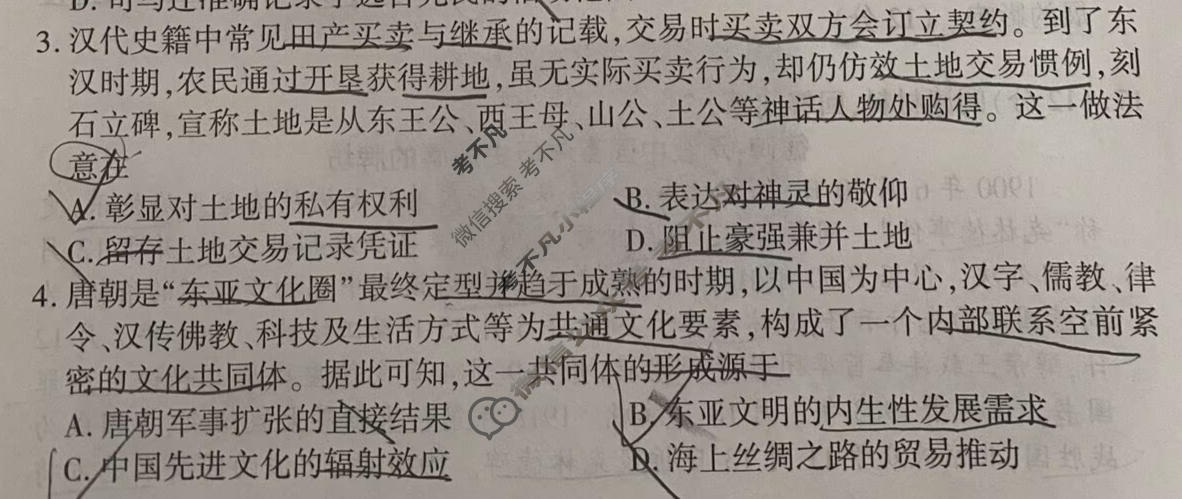 3. 汉代史籍中常见田产买卖与继承的记载,交易时买卖双方会订立契约。到了东
汉时期,农民通过开垦获得耕地,虽无实际买卖行为,却仍仿效土地交易惯例,刻
石立碑,宣称土地是从东王公、西王母、山公、土公等神话人物处购得。这一做法
意在
A. 彰显对土地的私有权利
B. 表达对神灵的敬仰
C. 留存土地交易记录凭证
D. 阻止豪强兼并土地
4. 唐朝是“东亚文化圈”最终定型并趋于成熟的时期,以中国为中心,汉字、儒教、律
令、汉传佛教、科技及生活方式等为共通文化要素,构成了一个内部联系空前紧
密的文化共同体。据此可知,这一共同体的形成源于
A. 唐朝军事扩张的直接结果
B. 东亚文明的内生性发展需求
C. 中国先进文化的辐射效应
D. 海上丝绸之路的贸易推动
考不凡
微信搜索 考不凡